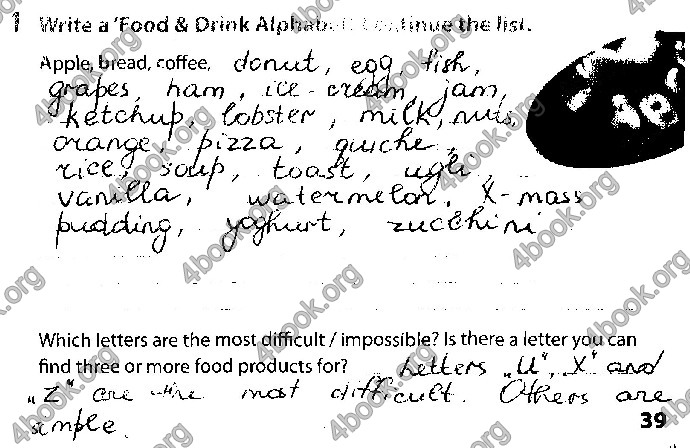 1 Write a 'Food & Drink Alphabet'. Continue the list.
Apple, bread, coffee, donut, egg, fish,
grapes, ham, ice-cream, jam,
ketchup, lobster, milk, nuts,
orange, pizza, quiche,
rice, soup, toast, ugli,
vanilla, watermelon, X-mass
pudding, yoghurt, zucchini
Which letters are the most difficult / impossible? Is there a letter you can
find three or more food products for? Letters „U", „X" and
„Z" are the most difficult. Others are
simple.
39
4book.org
4book.org
4book.org
4book.org
4book.org
4book.org
4book.org
4book.org
4book.org